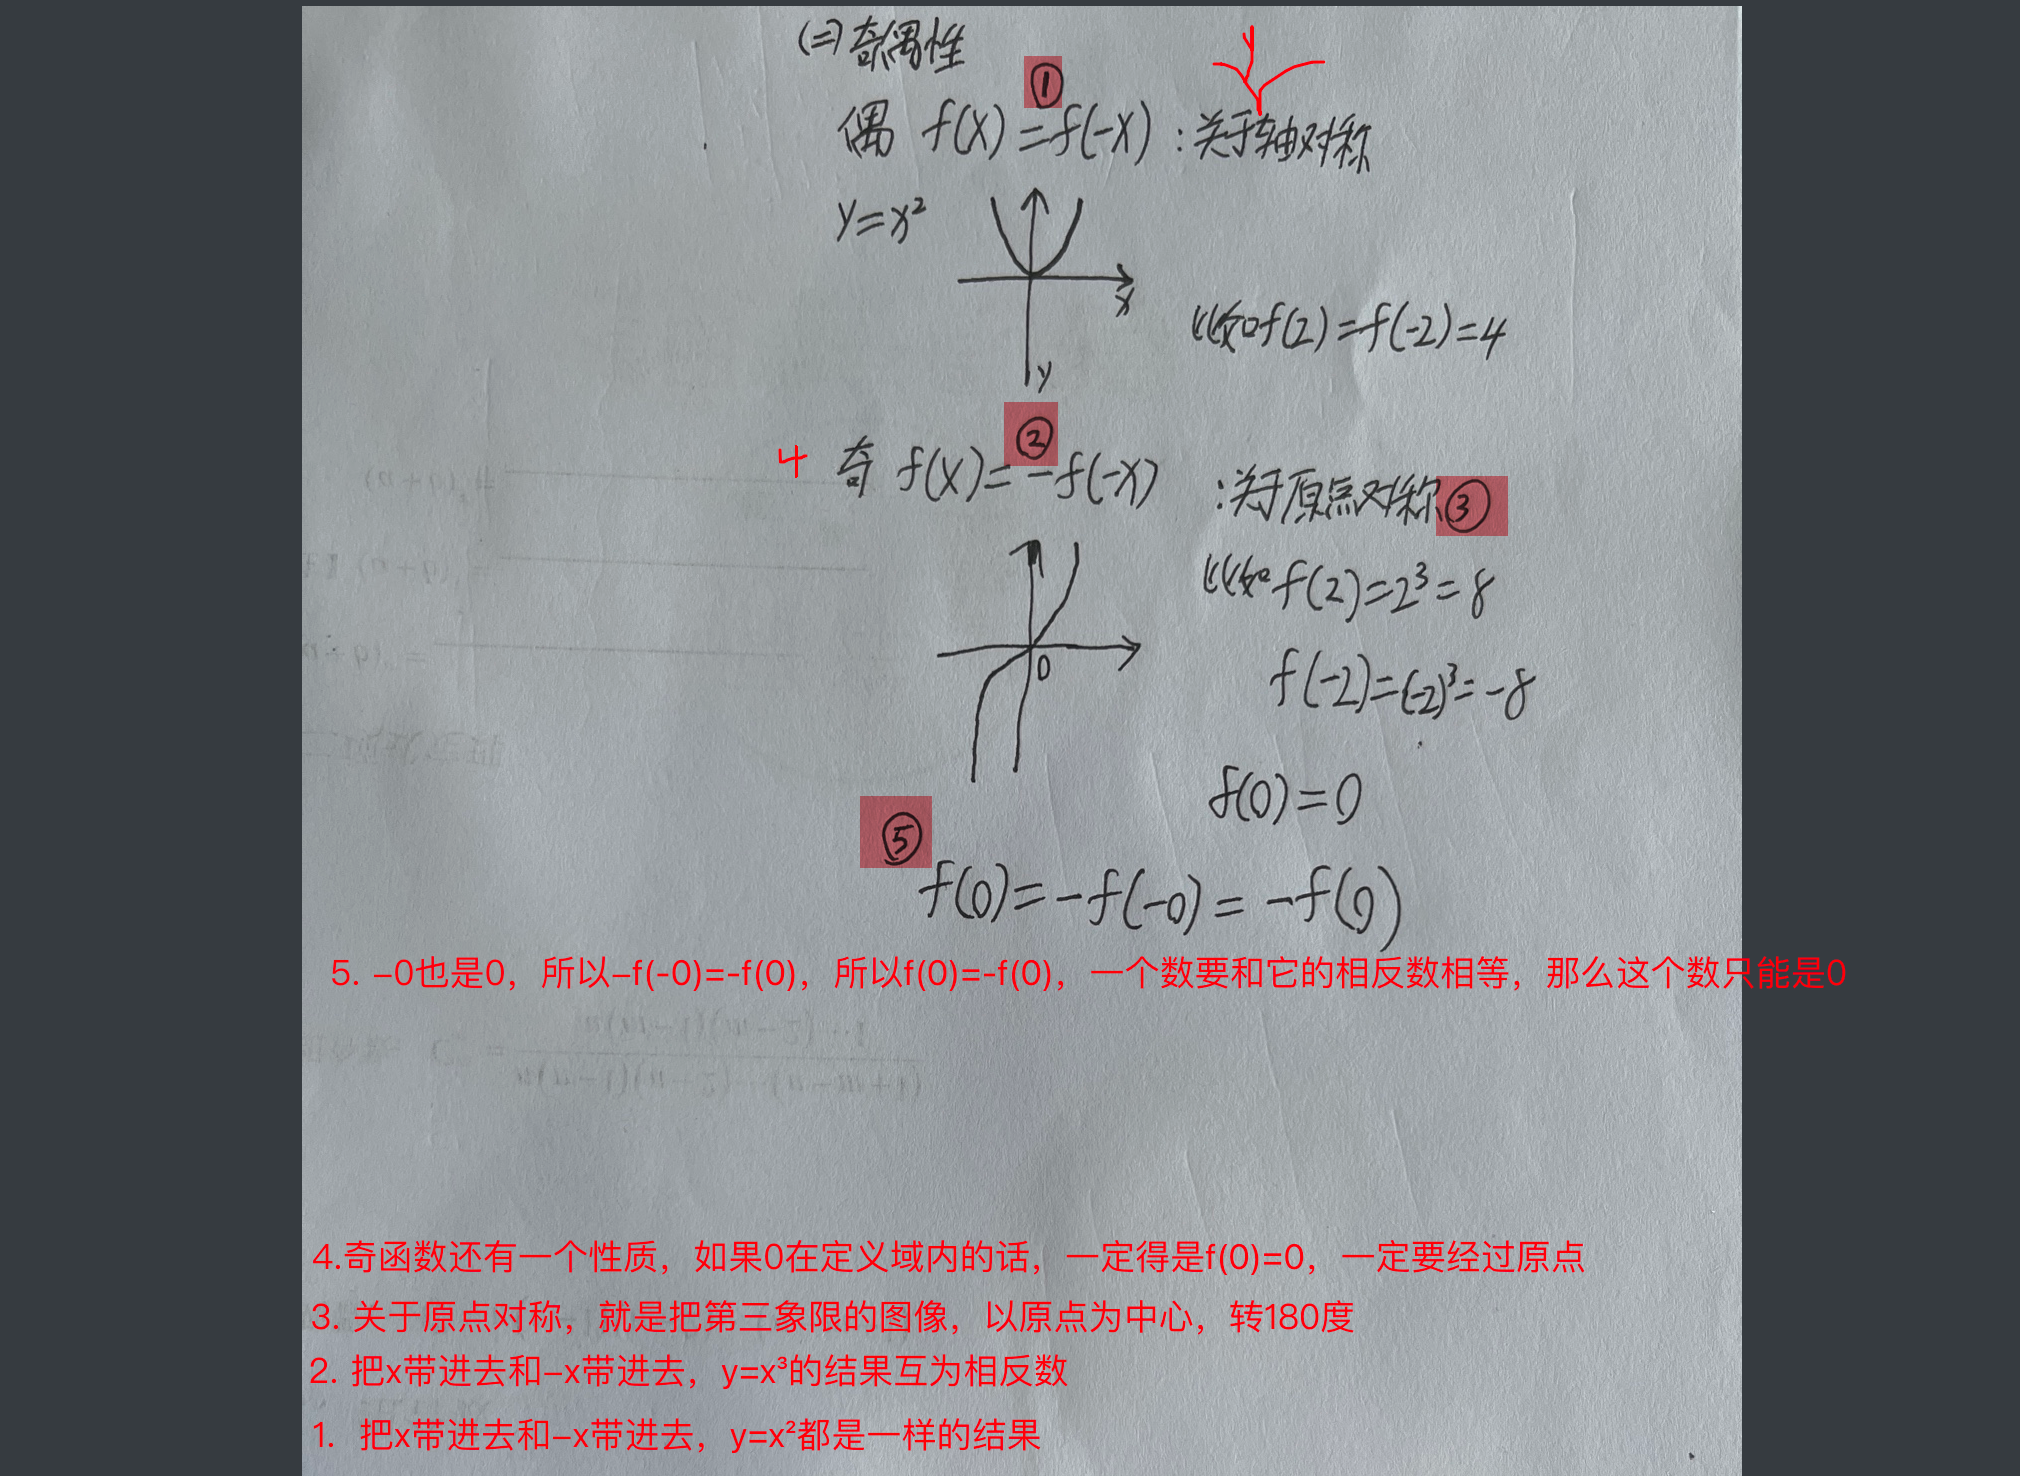 (二)奇偶性
①
y
偶 f(x)=f(-x) :关于轴对称
y=x²
x
比如f(2)=f(-2)=4
y
②
4 奇 f(x)=-f(-x) :关于原点对称③
比如f(2)=2³=8
0
f(-2)=(-2)³=-8
f(0)=0
⑤
f(0)=-f(-0)=-f(0)
5. –0也是0，所以–f(-0)=-f(0)，所以f(0)=-f(0)，一个数要和它的相反数相等，那么这个数只能是0
4.奇函数还有一个性质，如果0在定义域内的话，一定得是f(0)=0，一定要经过原点
3. 关于原点对称，就是把第三象限的图像，以原点为中心，转180度
2. 把x带进去和–x带进去，y=x³的结果互为相反数
1. 把x带进去和–x带进去，y=x²都是一样的结果